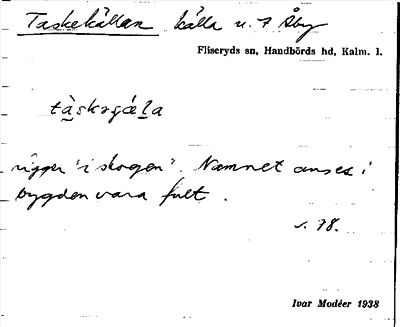 Taskekällan källa u. 7 Åby
Fliseryds sn, Handbörds hd, Kalm. l.
tàskəçǽla
ligger "i skogen". Namnet anses i
bygden vara fult.
s. 78.
Ivar Modéer 1938